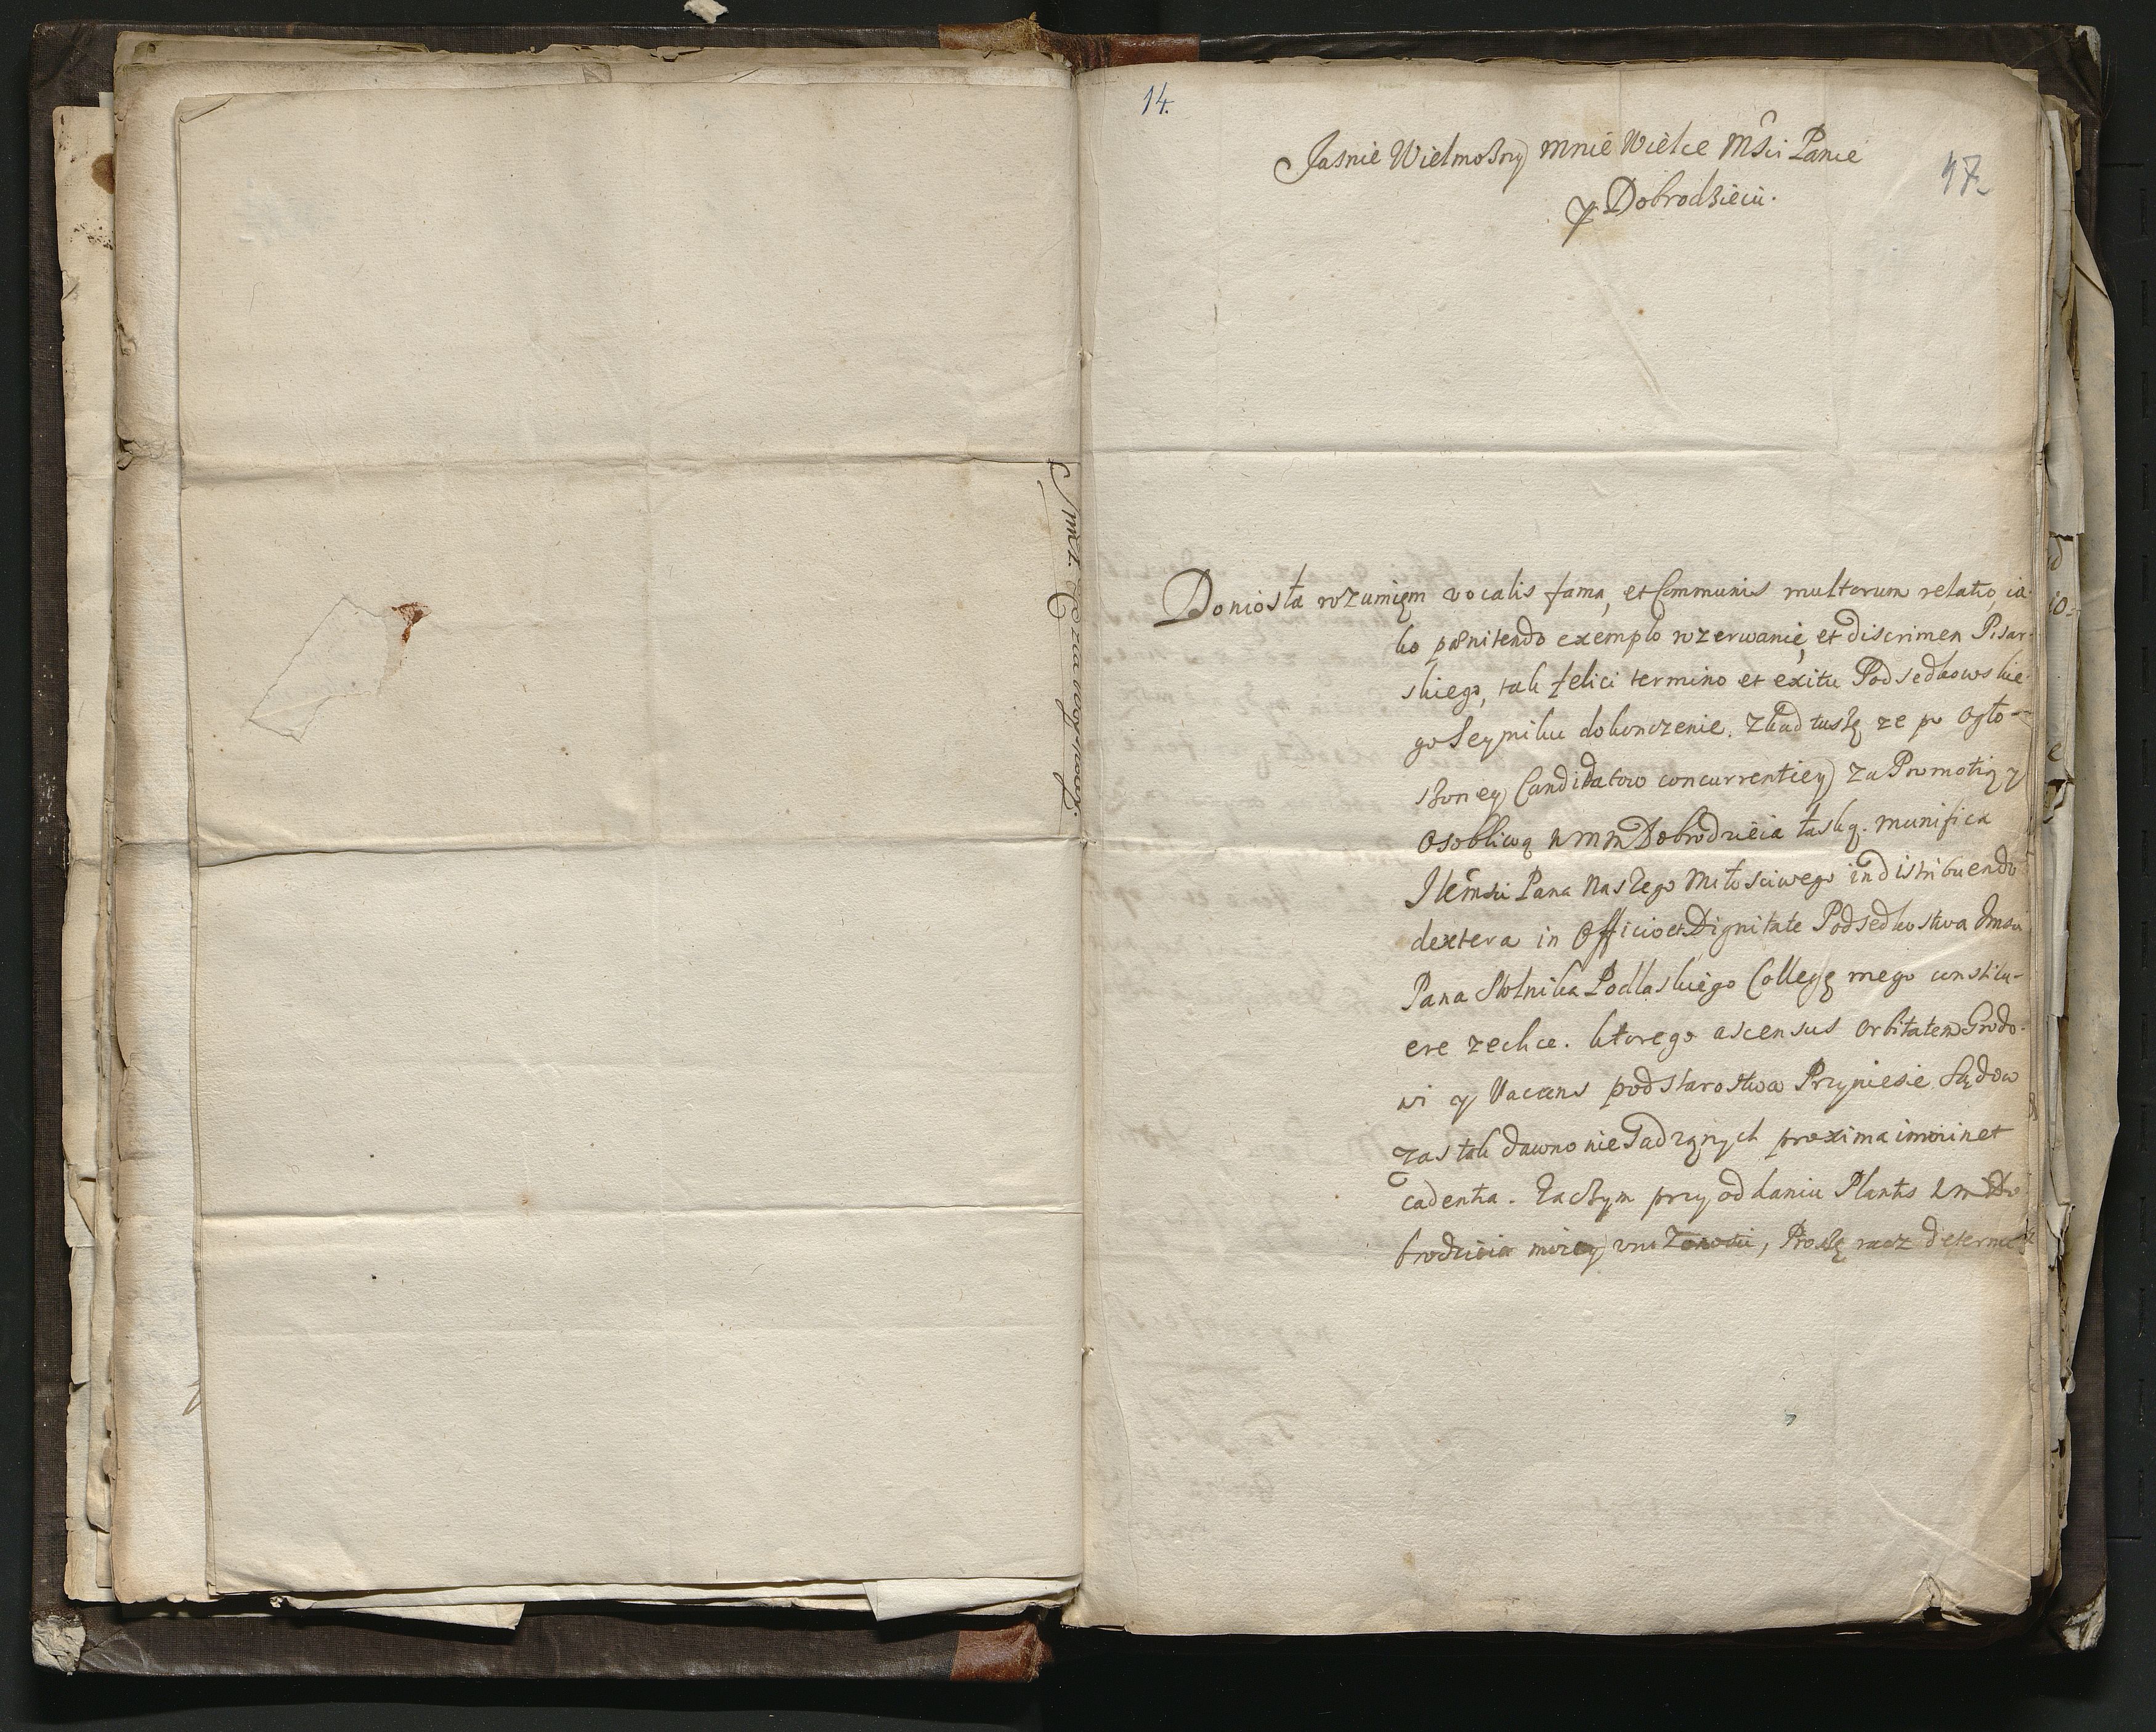 14.
Jasnie Wielmożny mnie Wielce Mści Panie
47
y Dobrodzieiu.
Doniosła rozumięm vocalis fama, et Communis multorum relatio, ia
ko pœnitendo exemplo rozerwanie, et discrimen Pisar-
skiego, tak felici termino et exitu Podsedkowskie
go Seymiku dokonczenie. Zkad tuszę ze po ogło-
szoney Candidatow concurrentiey za Promotią y
osobliwą WMM Dobrodzieia łaską. munifica
JKeMści Pana Naszego Miłosciwego in distribuendo
dextera in Officio et Dignitate Podsedkostwa Jmsci
Pana Stolnika Podlaskiego Collegę mego constitu-
ere zechce. ktorego ascensus orbitatem Grodo-
wi y Vacans podstarostwa Przyniesie. Sądow
zas tak dawno nie Sadzonych proxima imminet
cadentia. Zaczym przy oddaniu Plantis WM Do
brodzieia moiey unizonosci, Proszę racz determi
JmP. Pozna Woy: